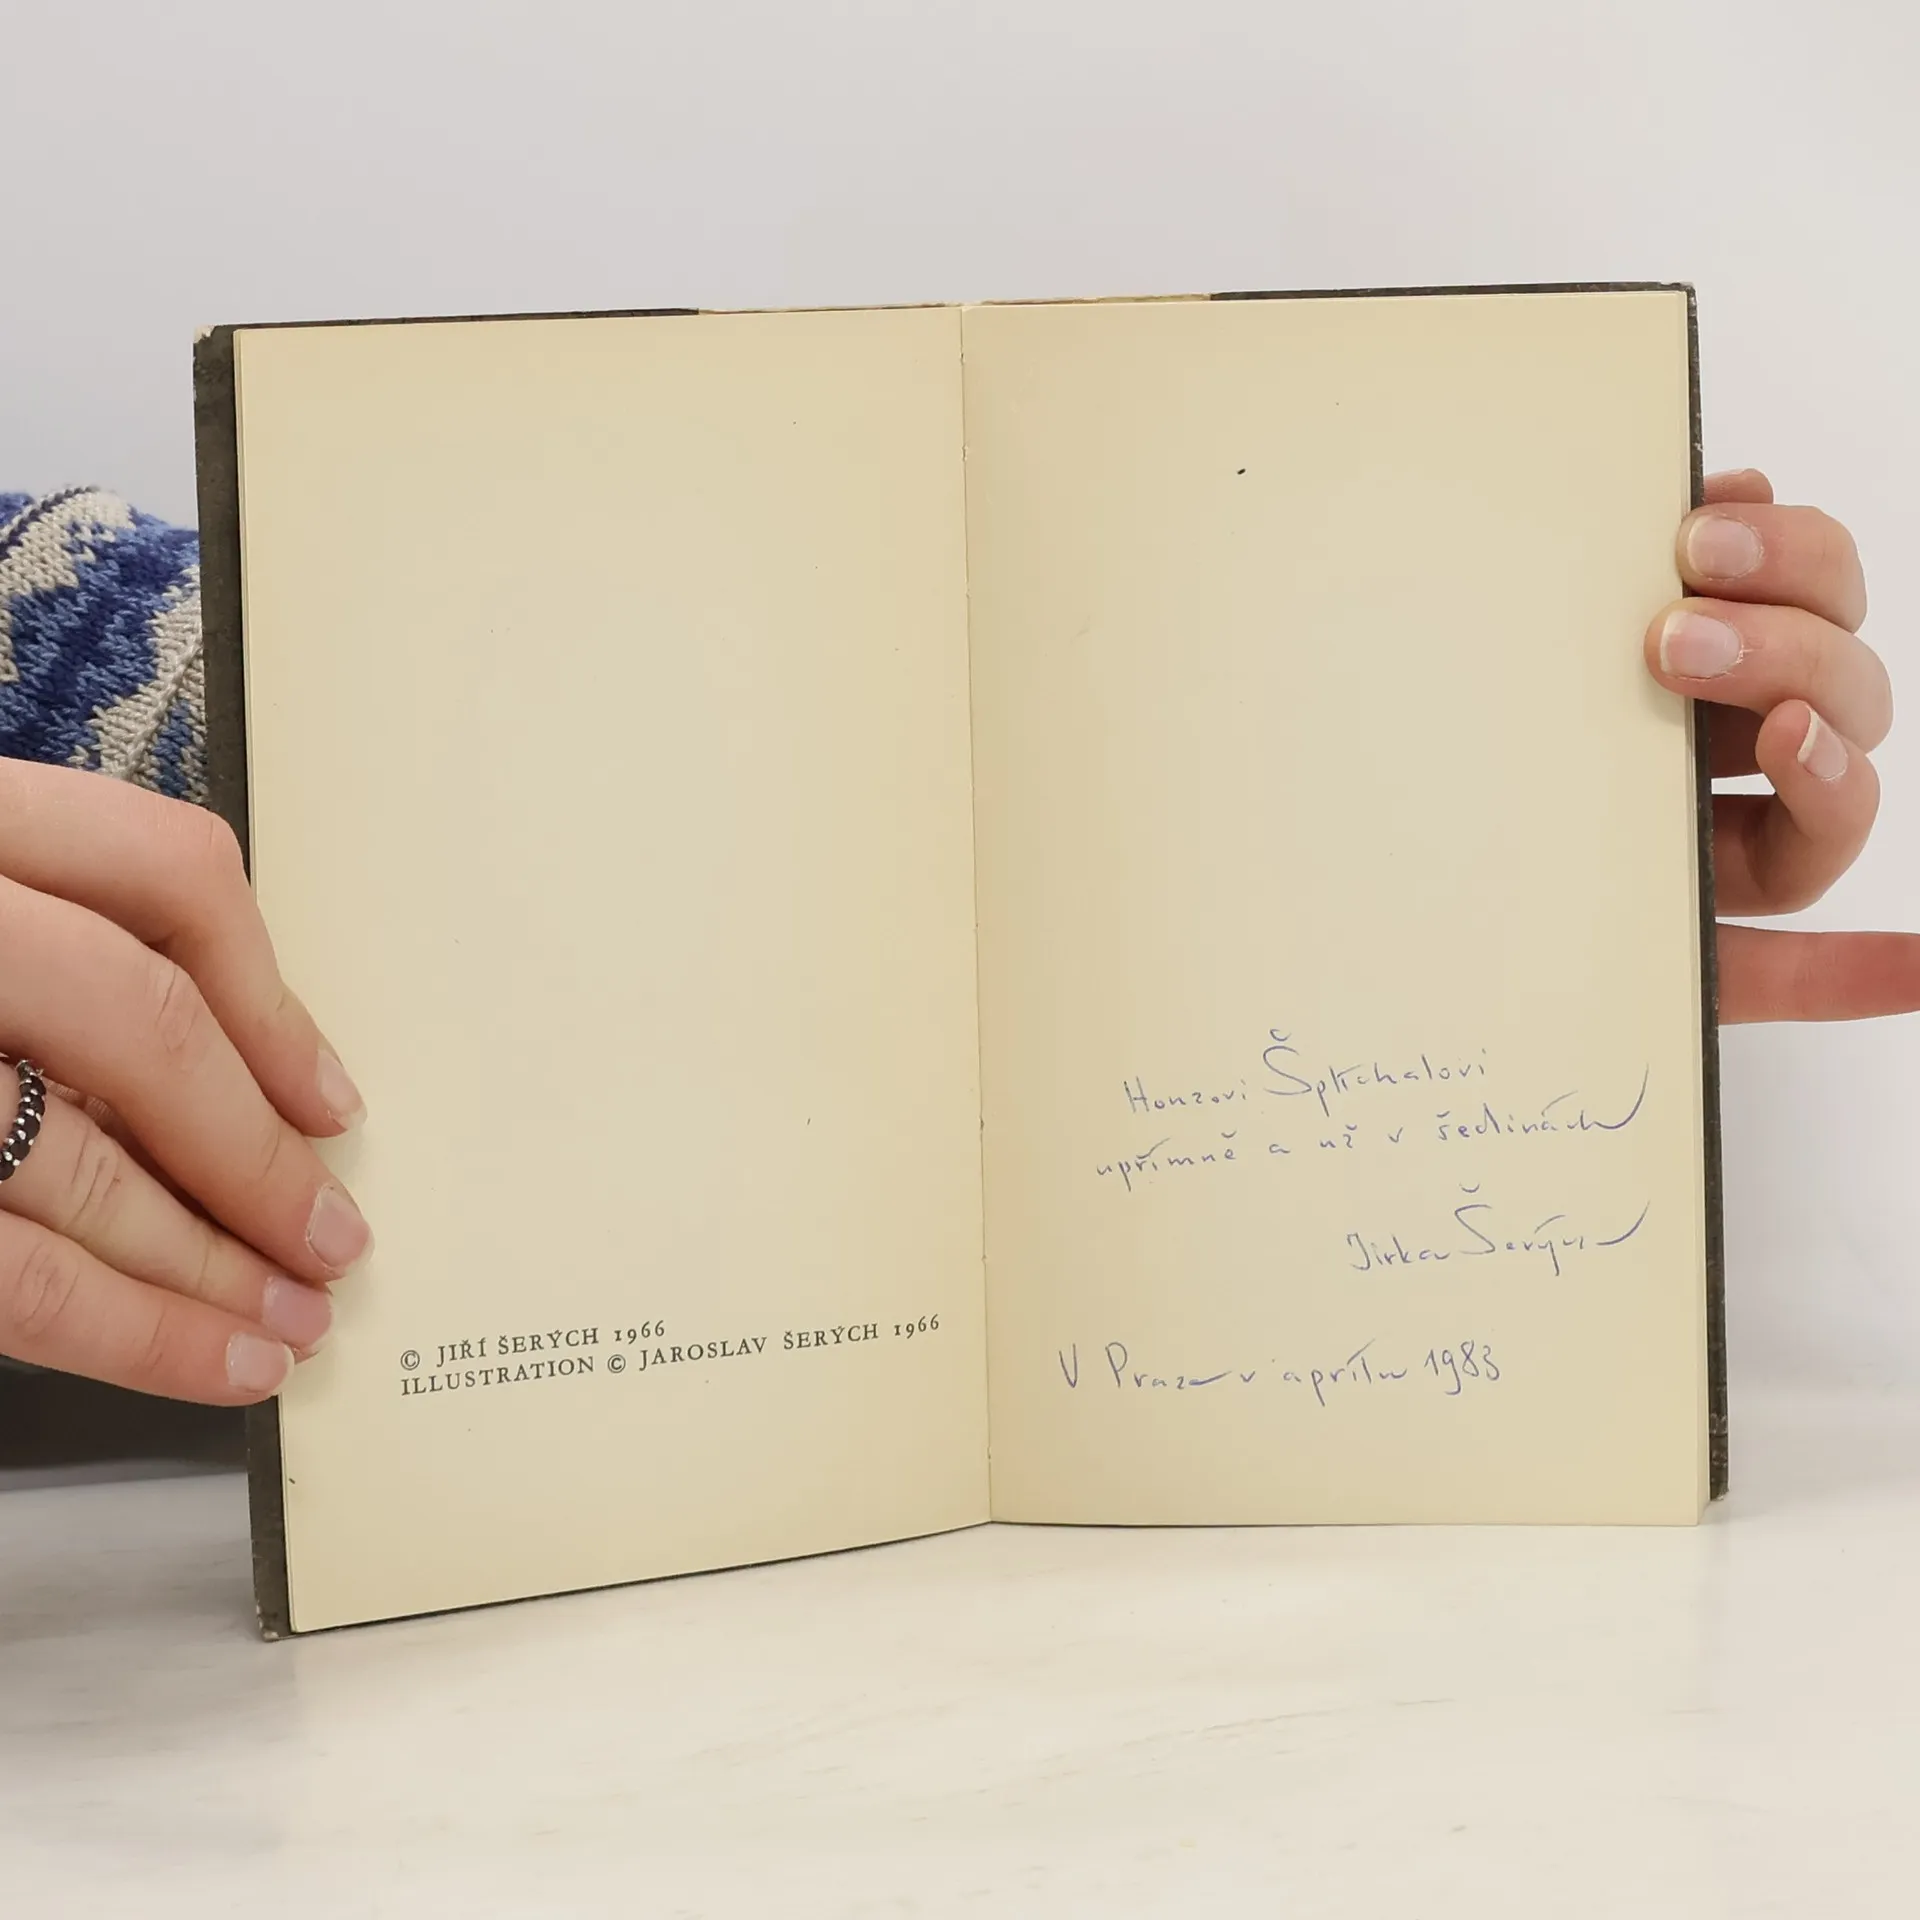 © JIŘÍ ŠERÝCH 1966
ILLUSTRATION © JAROSLAV ŠERÝCH 1966
Honzovi
upřímně a už v šedinách
Jirka Šerých
V Praze v aprílu 1983